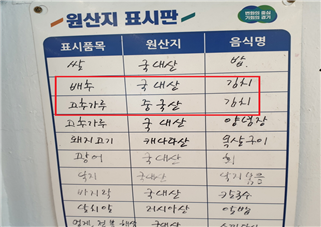 원산지 표시판
변화의 중심
기회의 경기
표시품목 원산지 음식명
쌀 국내산 밥
배추 국내산 김치
고추가루 중국산 김치
고추가루 국내산 양념장
돼지고기 캐나다산 목살구이
광어 국내산 회
낙지 국내산 낙지볶음
바지락 국내산 칼국수
러시아산